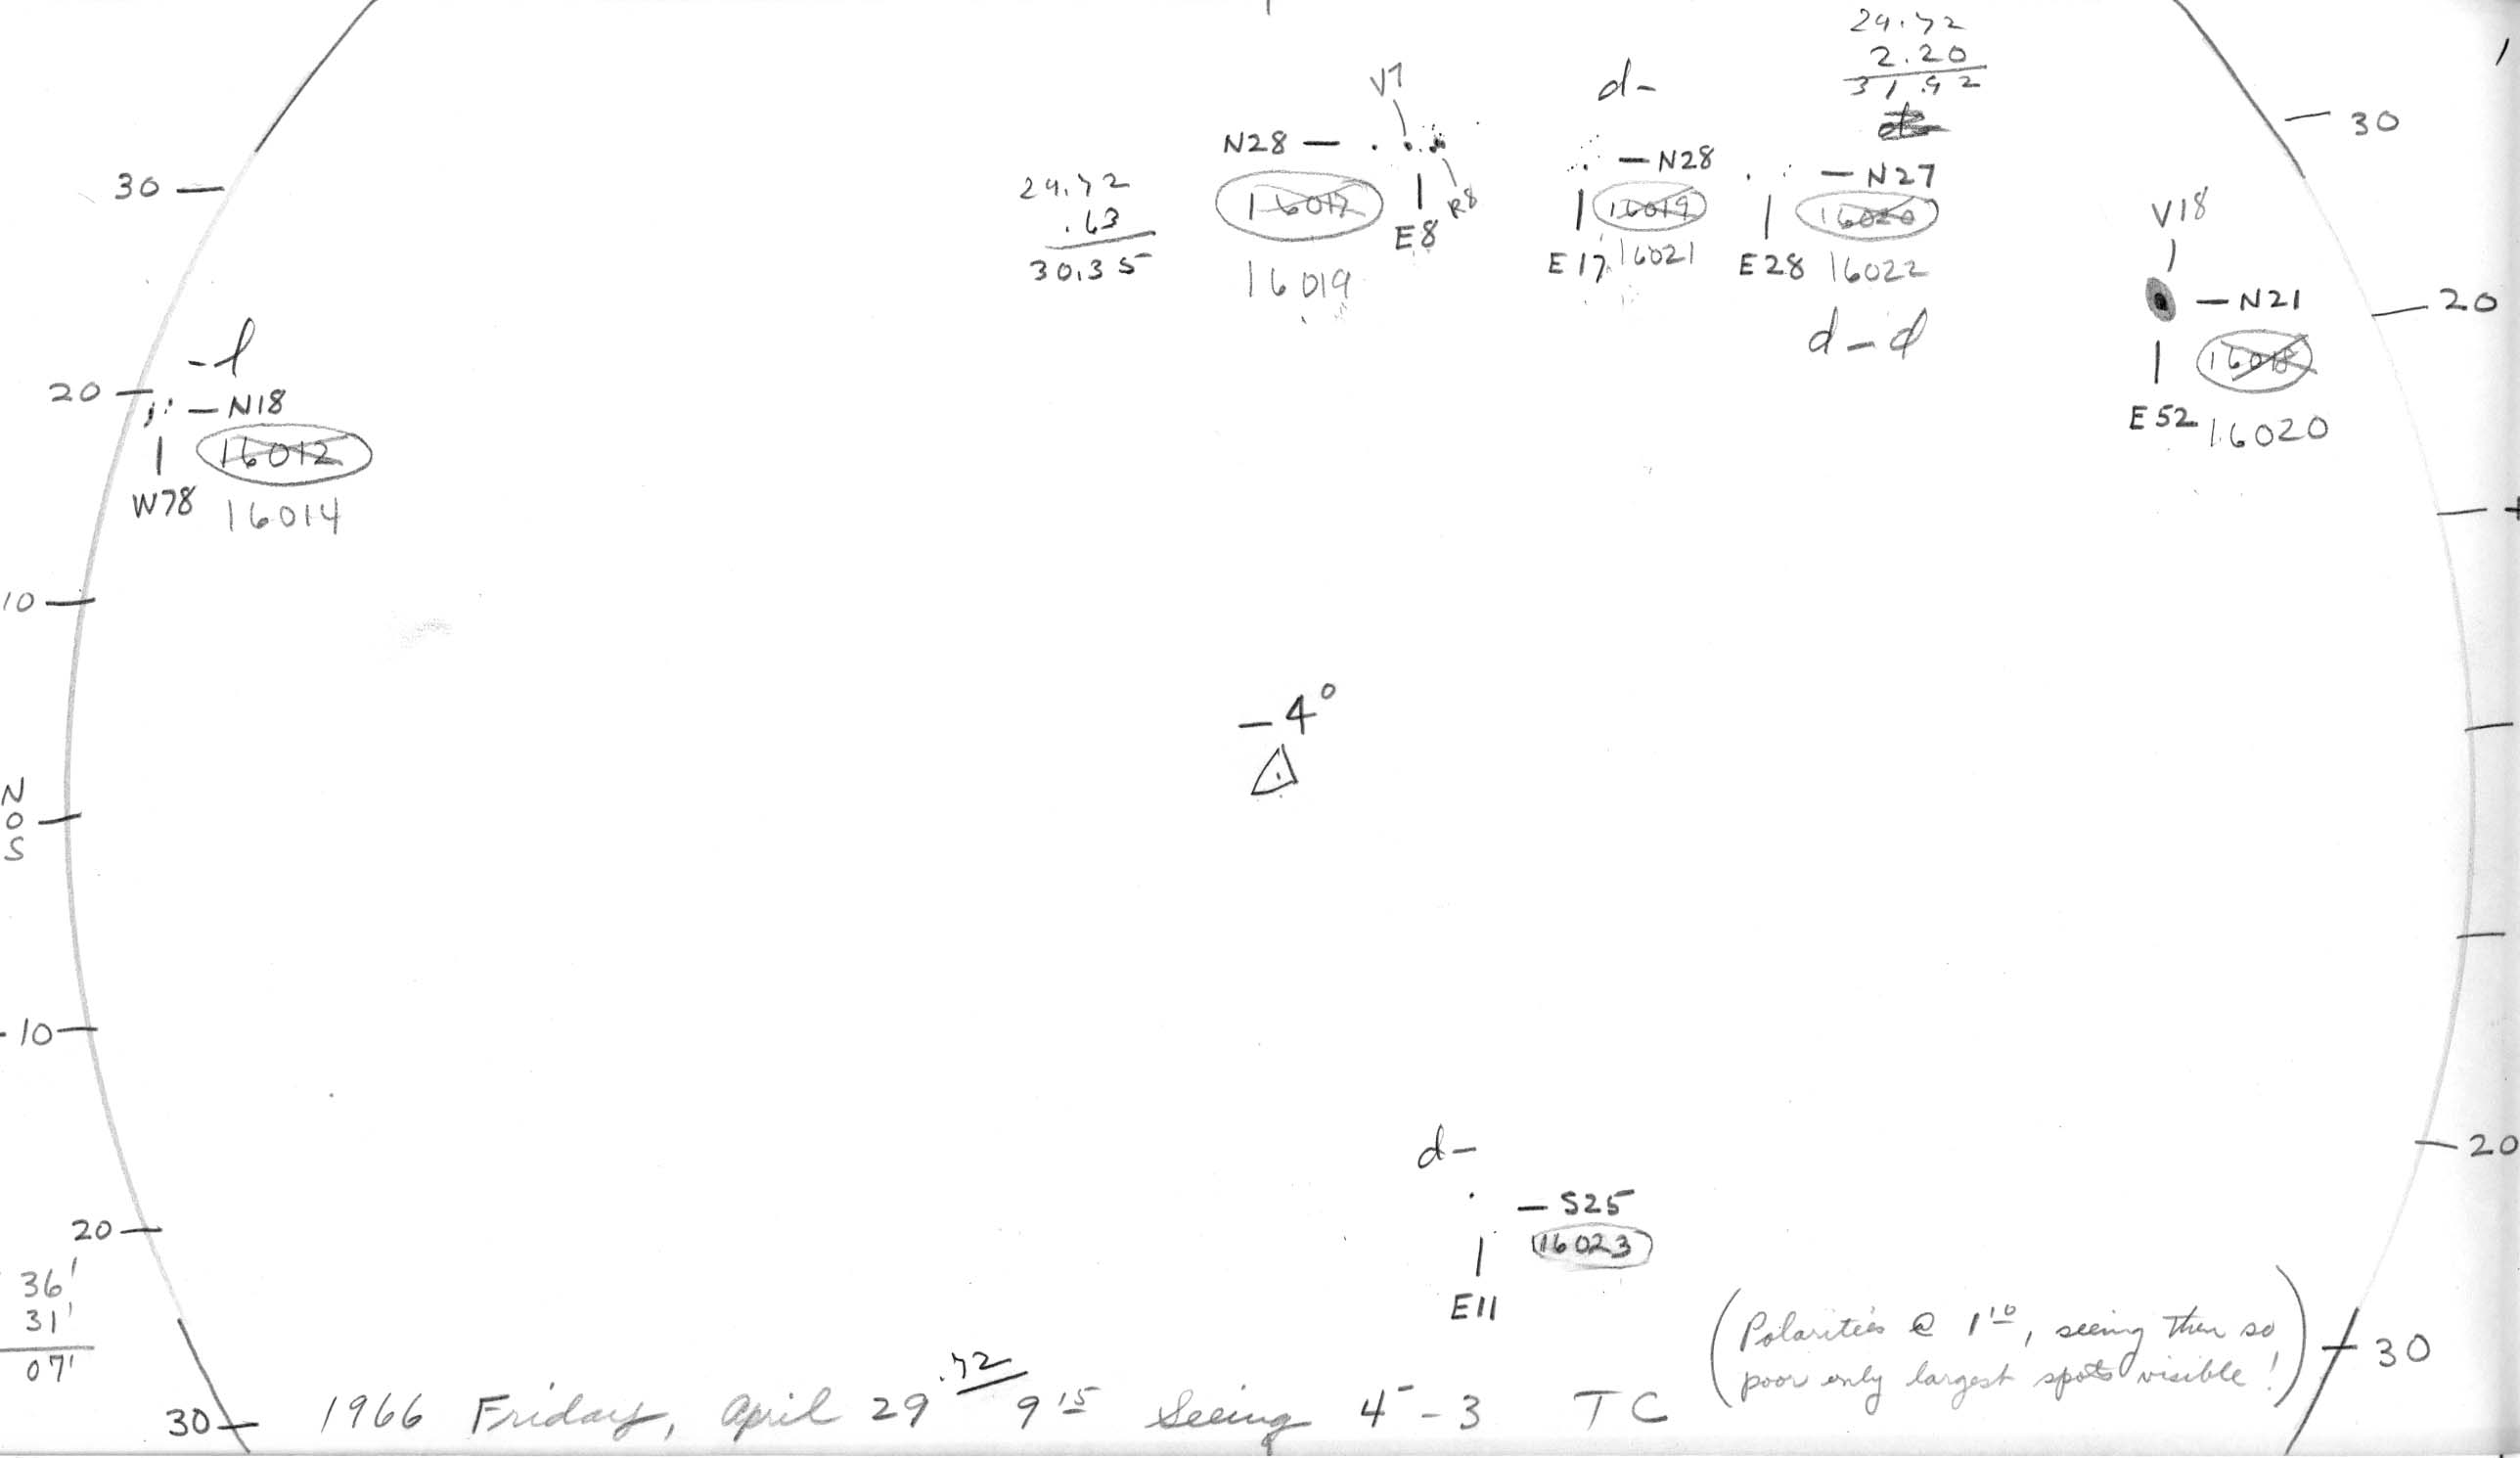 24.72
2.20
31.92
V7
d-
N28 —
— N28
— N27
30
30
24.72
.63
30.35
16017
R8
E8
16019
16019
E17
16021
16020
E28
16022
d-d
V18
— N21
20
16018
E52
16020
-l
20
— N18
16012
W78
16014
10
-4°
N
0
S
-10
20
d-
— S25
16023
E11
20
36'
31'
07'
(Polarities @ 1¹⁰, seeing then so
poor only largest spots visible!)
30
30
1966 Friday, April 29.72 9¹⁵ Seeing 4⁻-3 TC